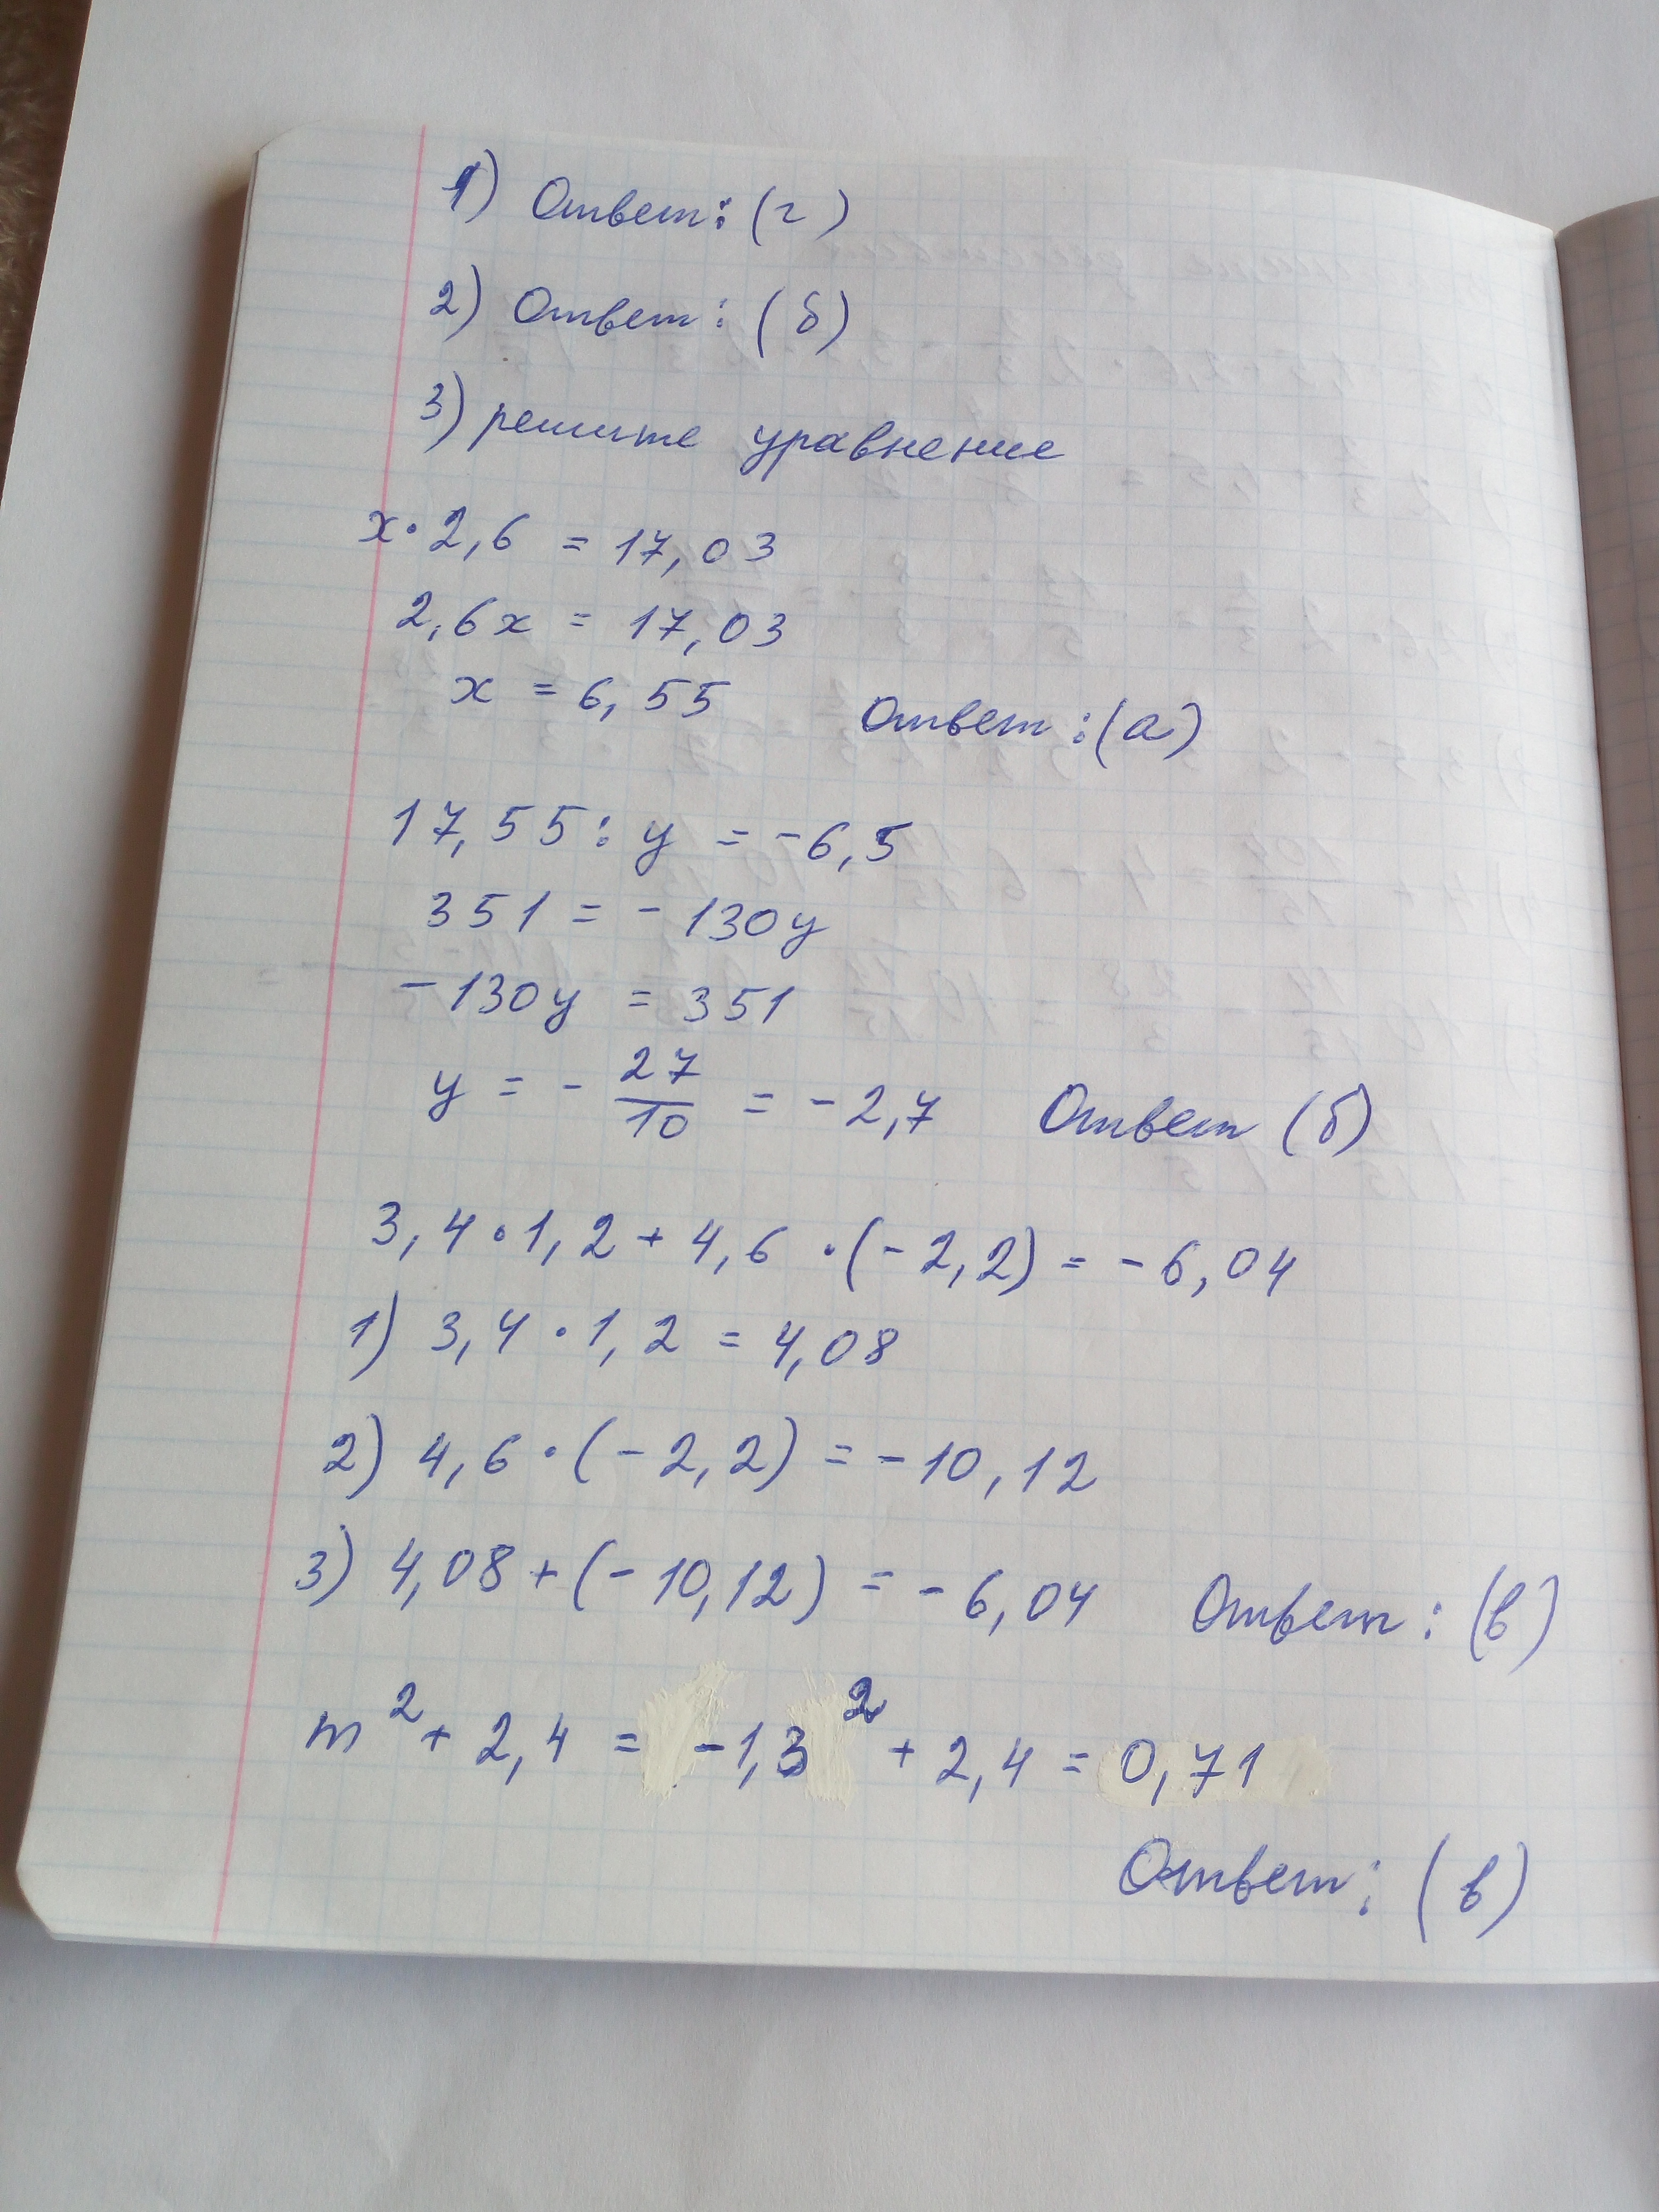 1) Ответ: (г)
2) Ответ: (б)
3) решите уравнение
x · 2,6 = 17,03
2,6x = 17,03
x = 6,55 Ответ: (а)
17,55 : y = -6,5
351 = -130y
-130y = 351
y = - 27/10 = -2,7 Ответ (б)
3,4 · 1,2 + 4,6 · (-2,2) = -6,04
1) 3,4 · 1,2 = 4,08
2) 4,6 · (-2,2) = -10,12
3) 4,08 + (-10,12) = -6,04 Ответ: (в)
m² + 2,4 = -1,3² + 2,4 = 0,71
Ответ: (в)